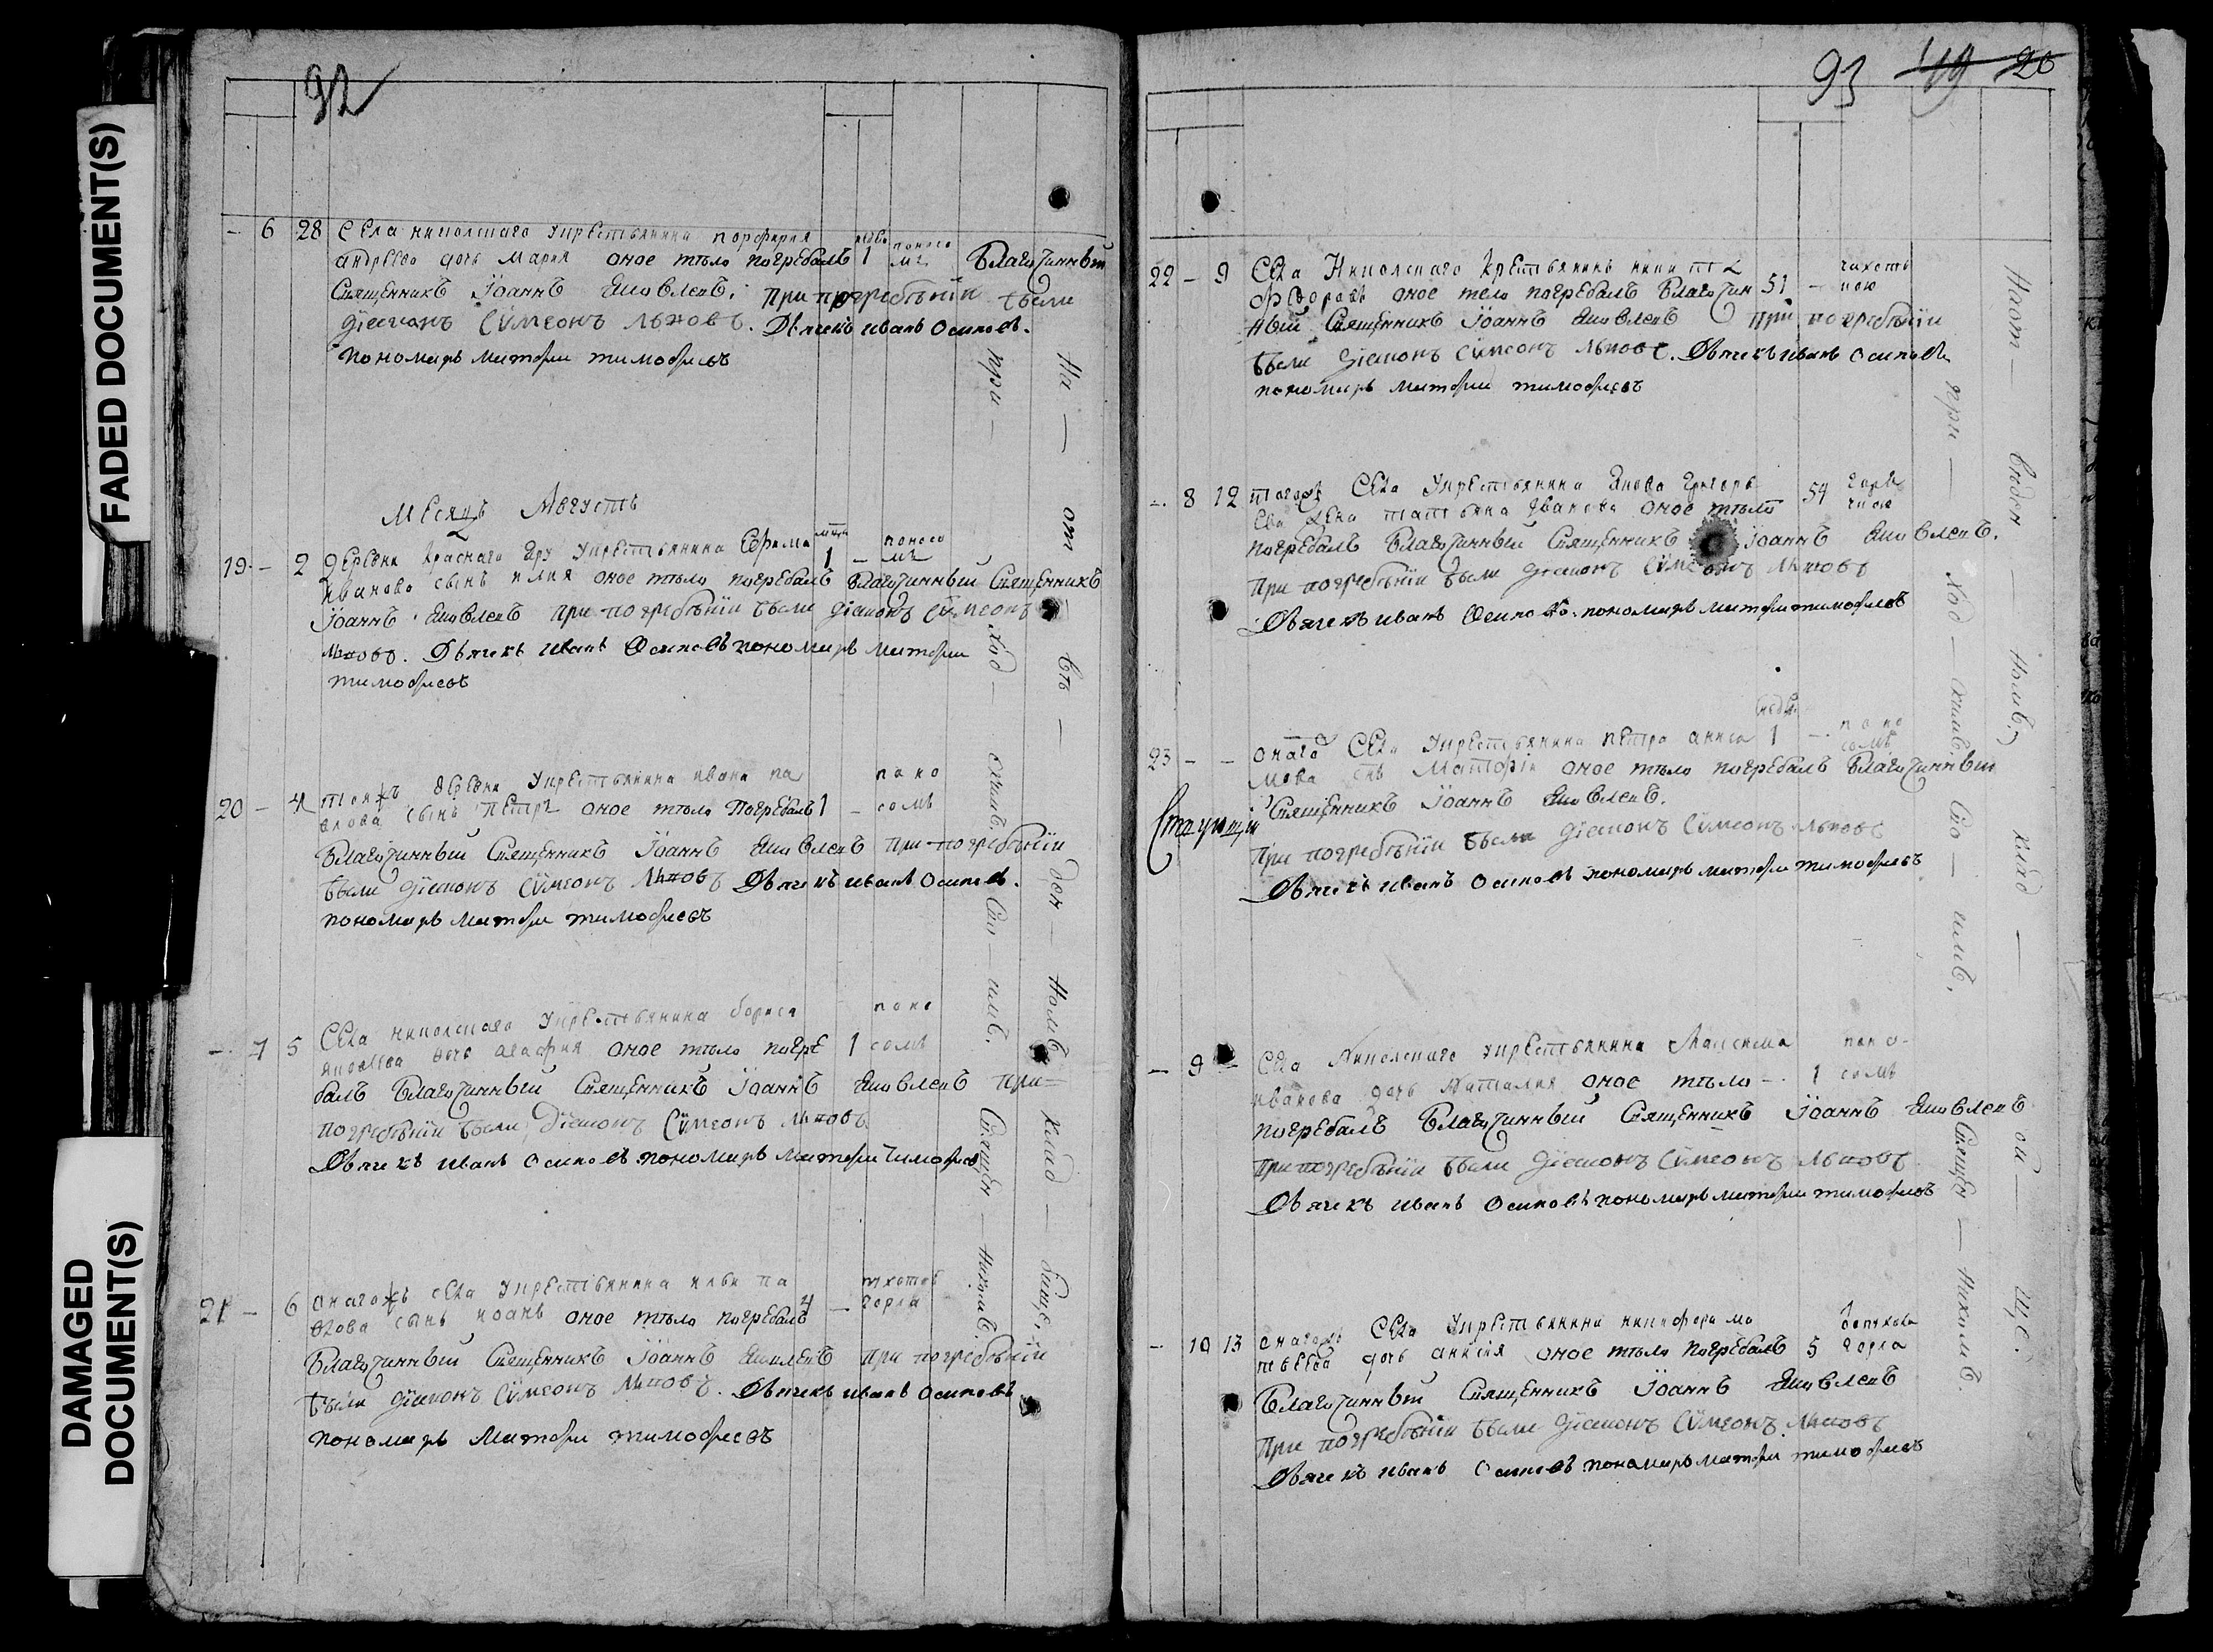 FADED DOCUMENT(S)
DAMAGED
DOCUMENT(S)
92
- 6 28 Села николскаго крестьянина порфирия
андреева дочь Мария оное тѣло погребалъ 1 поносо
мъ Благочинный
Священникъ Іоаннъ Яковлевъ. При погребѣніи были
діаконъ Сѵмеонъ Львовъ. Дьячекъ иванъ осиповъ.
пономарь матфеи тимофеевъ
Месяцъ Августъ
19 - 2 деревни Краснаго Яру крестьянина Ефима
иванова сынъ илия оное тѣло погребалъ 1 - поносо
мъ Благочинный Священникъ
Іоаннъ Яковлевъ при погребѣніи были діаконъ Сѵмеонъ
Львовъ. Дьячекъ иванъ Осиповъ пономарь матфеи
тимофеевъ
20 - 4 тояжъ деревни крестьянина ивана па
влова сынъ Петръ оное тѣло погребалъ 1 - поно
сомъ
Благочинный Священникъ Іоаннъ Яковлевъ при погребѣніи
были діаконъ Сѵмеонъ Львовъ Дьячекъ иванъ Осиповъ.
пономарь матфеи тимофеевъ
- 7 5 Села николскаго крестьянина бориса
яковлева дочь агафия оное тѣло погре 1 поно
сомъ
балъ Благочинный Священникъ Іоаннъ Яковлевъ при
погребѣніи были Діаконъ Сѵмеонъ Львовъ
Дьячекъ иванъ осиповъ пономарь матфеи тимофеевъ
21 - 6 онагожъ села крестьянина ильи па
влова сынъ иоанъ оное тѣло погребалъ 4 - горла
Благочинный Священникъ Іоаннъ Яковлевъ при погребѣніи
были діаконъ Сѵмеонъ Львовъ. Дьячекъ иванъ осиповъ
пономарь Матфеи тимофеевъ
При - ход - скимъ. Сво - имъ. Священ - никомъ.
На - от - вѣ - ден - номъ клад - бище.
93 49 20
22 - 9 Села Николскаго Крестьянинъ никита
Федоровъ оное тело погребалъ Благочин 51 - чахот
кою
ный Священникъ Іоаннъ Яковлевъ При погребѣніи
были діаконъ Сѵмеонъ Львовъ. Дьячекъ иванъ осиповъ
пономарь матфеи тимофеевъ
- 8 12 тогожъ Села крестьянина Якова Григорь
ева жена татьяна Иванова оное тѣло 54 горя
чкою
погребалъ Благочинный Священникъ Іоаннъ Яковлевъ.
При погребѣніи были діаконъ Сѵмеонъ Львовъ
Дьячекъ иванъ Осиповъ. пономарь матфеи тимофеевъ
23 - - онаго Села крестьянина петра аниси
мова снъ Матфѣй оное тѣло погребалъ 1 - поно
сомъ Благочинный
Священникъ Іоаннъ Яковлевъ.
При погребѣніи были діаконъ Сѵмеонъ Львовъ
Дьячекъ иванъ Осиповъ пономарь матфеи тимофеевъ
- 9 - Села Николскаго крестьянина Максима
иванова дочь Наталия оное тѣло - 1 поно-
сомъ
погребалъ Благочинный Священникъ Іоаннъ Яковлевъ
при погребѣніи были діаконъ Сѵмеонъ Львовъ
Дьячекъ иванъ Осиповъ пономарь матфеи тимофеевъ
- 10 13 онагожъ Села крестьянина никифора ма
твеева дочь анисия оное тѣло погребалъ 5 горла
Благочинный Священникъ Іоаннъ Яковлевъ
При погребѣніи были діаконъ Сѵмеонъ Львовъ
Дьячекъ иванъ Осиповъ пономарь матфеи тимофеевъ
при - ход - скимъ. Сво - имъ. Священ - никомъ.